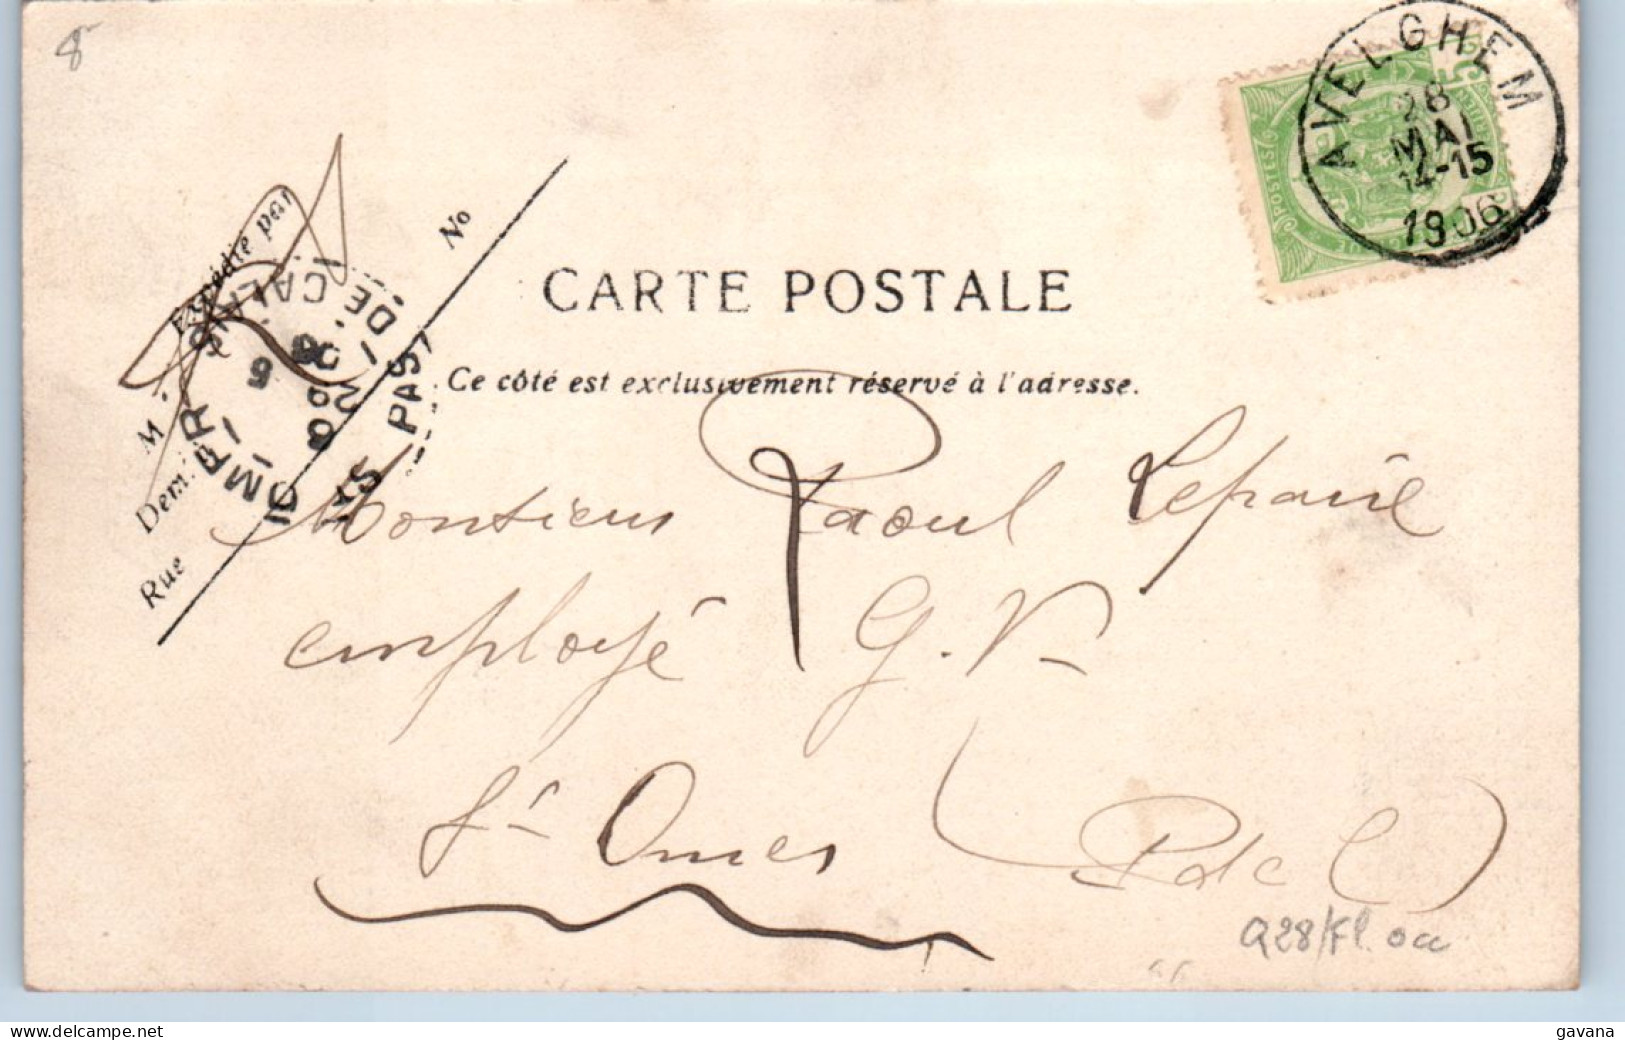 8
AVELGHEM
28
MAI
14-15
1906
POSTES
Expédié par
No
M.
Dem.
Rue
PAS DE CALAIS
CARTE POSTALE
Ce côté est exclusivement réservé à l'adresse.
Monsieur Raoul
employé G. V.
St Omer (P de C)
delcampe.net
gavana